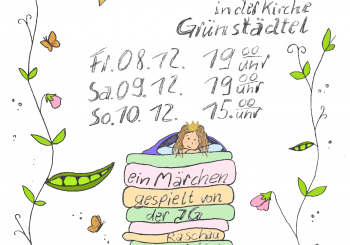 in der Kirche
Grünstädtel
Fr. 08.12. 19 00 Uhr
Sa. 09.12. 19 00 Uhr
So. 10.12. 15.00 Uhr
ein Märchen
gespielt von
der JG
Raschau